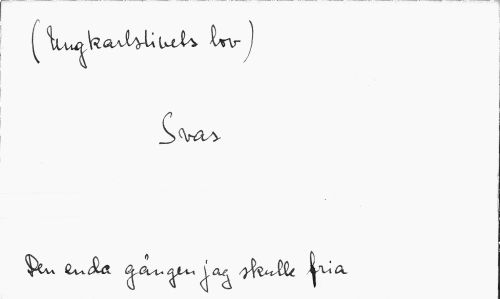 (Ungkarlslivets lov)
Svas
Den enda gången jag skulle fria